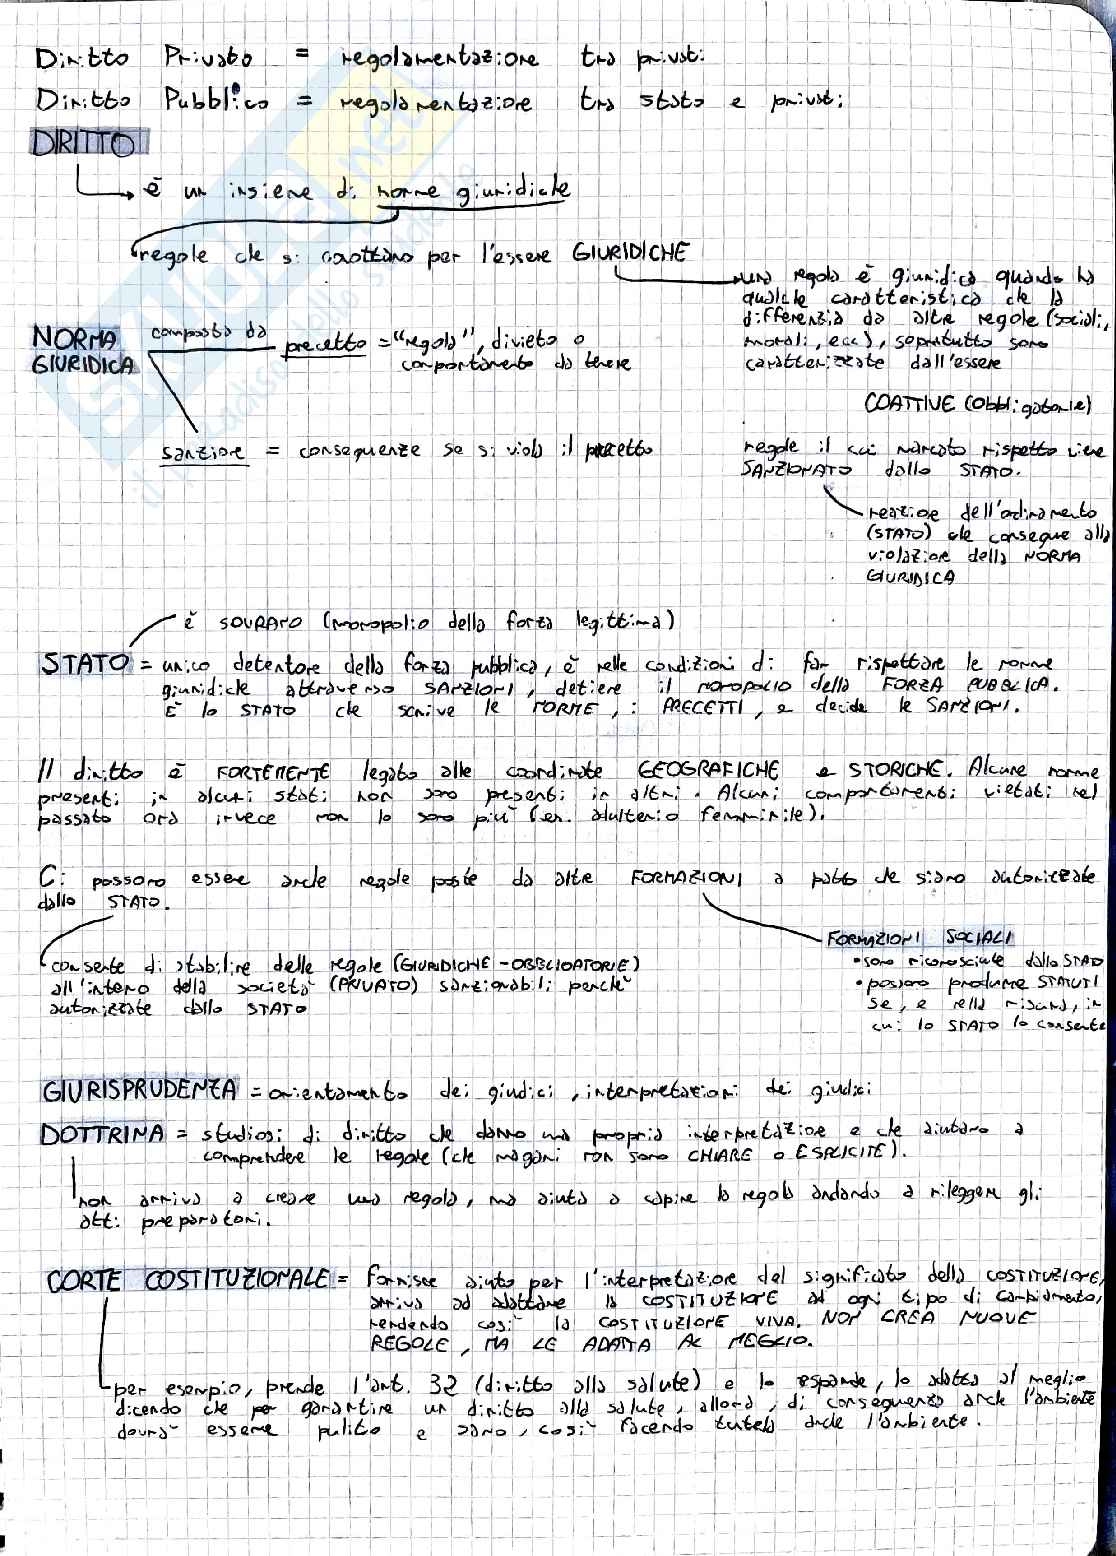 Diritto Privato = regolamentazione tra privati
Diritto Pubblico = regolamentazione tra stato e privati
DIRITTO
è un insieme di norme giuridiche
regole che si carattano per l'essere GIURIDICHE
una regola è giuridica quando ha
qualche caratteristica che la
differenzia da altre regole (sociali,
morali, ecc), soprattutto sono
caratterizzate dall'essere
COATTIVE (obbligatorie)
regole il cui mancato rispetto viene
SANZIONATO dallo STATO.
reazione dell'ordinamento
(STATO) che consegue alla
violazione della NORMA
GIURIDICA
NORMA
GIURIDICA
composta da
precetto = "regola", divieto o
comportamento da tenere
sanzione = conseguenze se si viola il precetto
è SOVRANO (monopolio della forza legittima)
STATO = unico detentore della forza pubblica, è nelle condizioni di far rispettare le norme
giuridiche attraverso SANZIONI, detiene il MONOPOLIO della FORZA PUBBLICA.
È lo STATO che scrive le NORME, i PRECETTI, e decide le SANZIONI.
Il diritto è FORTEMENTE legato alle coordinate GEOGRAFICHE e STORICHE. Alcune norme
presenti in alcuni stati non sono presenti in altri. Alcuni comportamenti vietati nel
passato ora invece non lo sono più (es. adulterio femminile).
Ci possono essere anche regole poste da altre FORMAZIONI a patto che siano autorizzate
dallo STATO.
consente di stabilire delle regole (GIURIDICHE - OBBLIGATORIE)
all'interno della società (PRIVATO) sanzionabili perchè
autorizzate dallo STATO
FORMAZIONI SOCIALI
• sono riconosciute dallo STATO
• possono produrre STATUTI
se, e nella misura, in
cui lo STATO lo consente
GIURISPRUDENZA = orientamento dei giudici, interpretazioni dei giudici
DOTTRINA = studiosi di diritto che danno una propria interpretazione e che aiutano a
comprendere le regole (che magari non sono CHIARE o ESPLICITE).
non arriva a creare una regola, ma aiuta a capire la regola andando a rileggere gli
atti preparatori.
CORTE COSTITUZIONALE = fornisce aiuto per l'interpretazione del significato della COSTITUZIONE,
arriva ad adattare la COSTITUZIONE ad ogni tipo di cambiamento,
rendendo così la COSTITUZIONE VIVA. NON CREA NUOVE
REGOLE, MA LE ADATTA AL MEGLIO.
per esempio, prende l'art. 32 (diritto alla salute) e lo espande, lo adatta al meglio
dicendo che per garantire un diritto alla salute, allora, di conseguenza anche l'ambiente
dovrà essere pulito e sano, così facendo tutela anche l'ambiente.